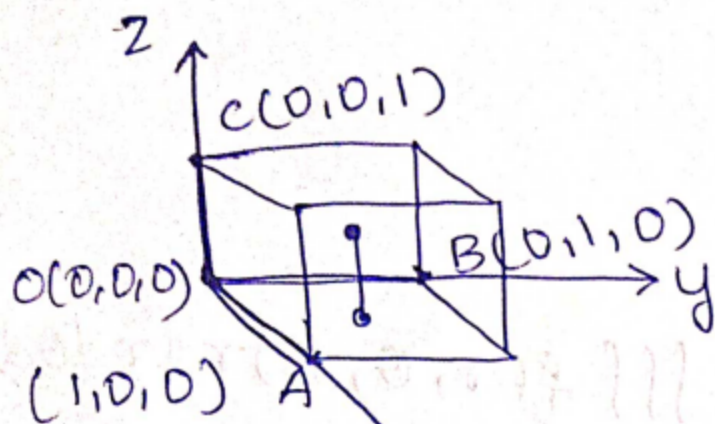 Z
C(0,0,1)
B(0,1,0)
O(0,0,0)
y
(1,0,0) A